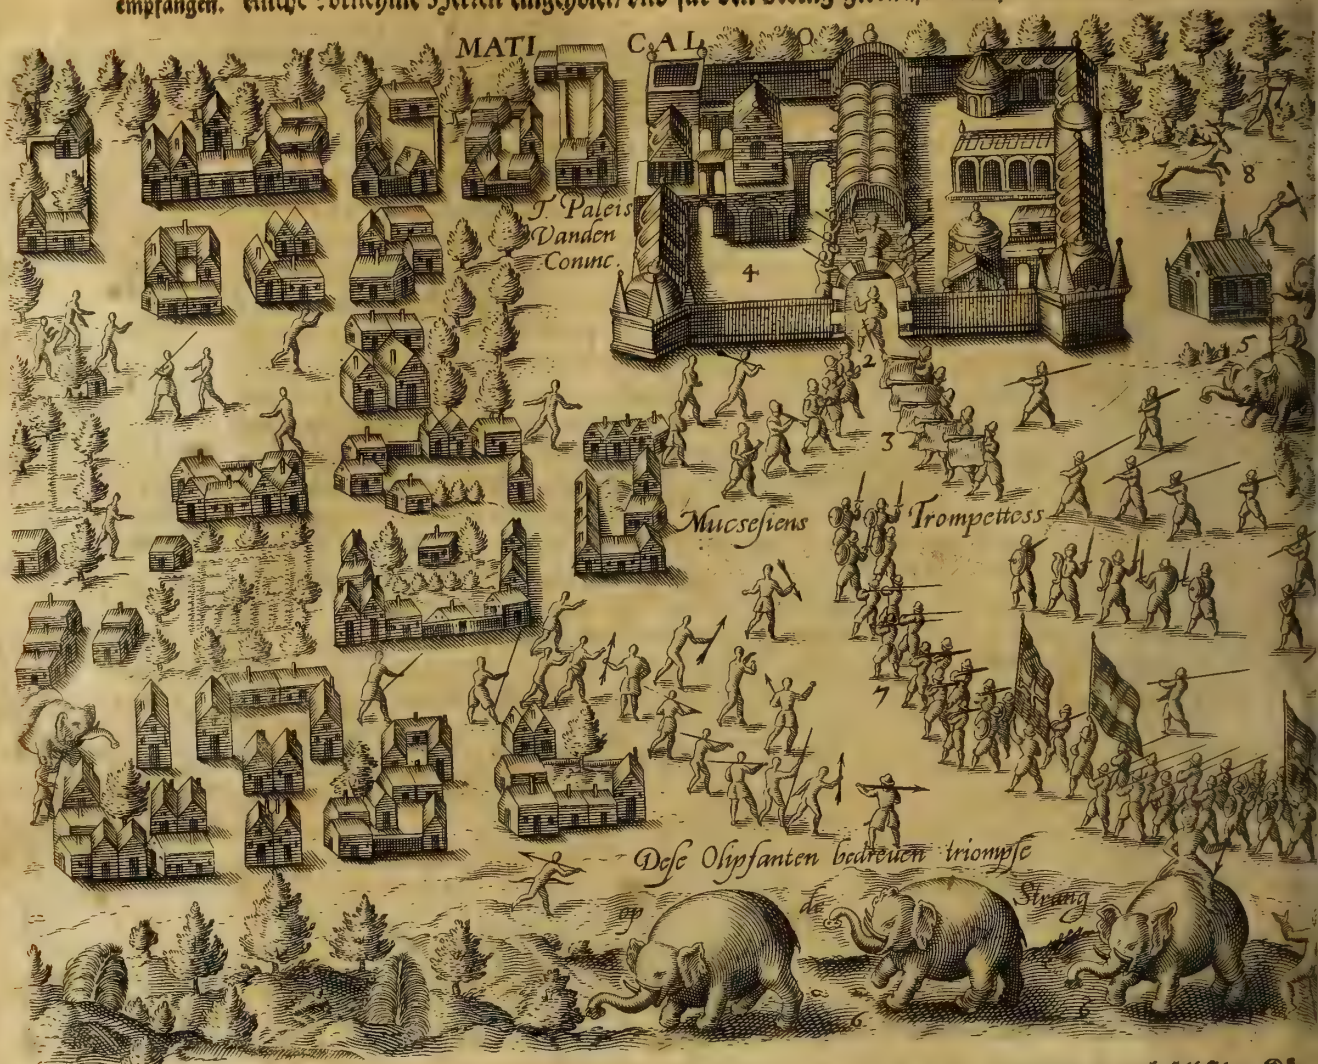 empfangen.
MATI CAL O
T. Paleis
Vanden
Coninc.
4
8
5
2
3
Mucsesiens
Trompettess
7
Dese Olipfanten bedreuen triompfe
op de Strang
6
6